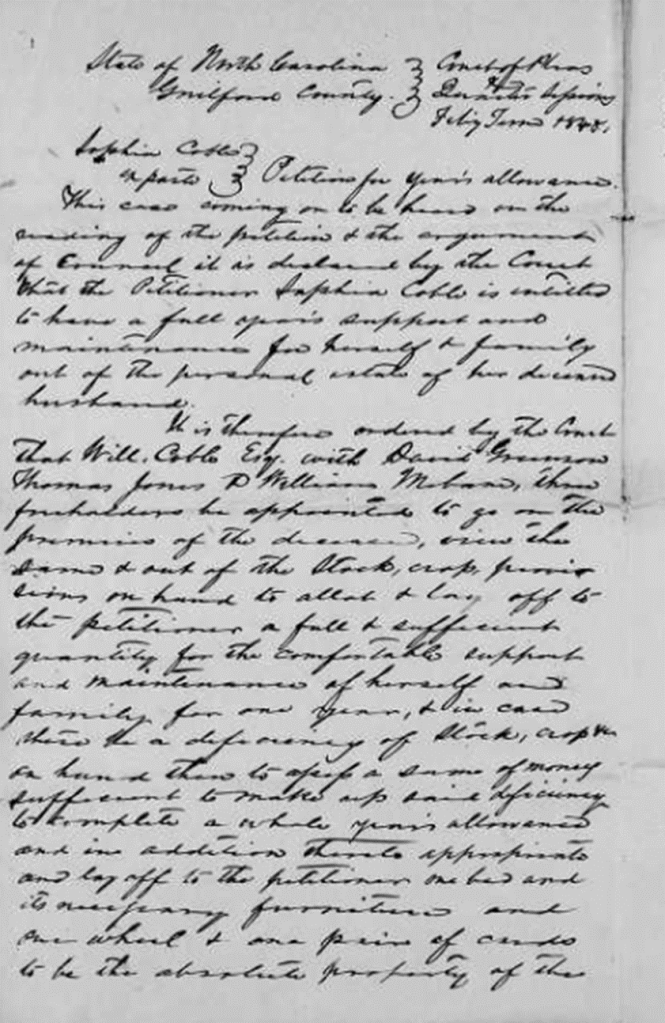 State of North Carolina } Court of Pleas
Guilford County. } & Quarter Sessions
Feby Term 1848.
Sophia Coble }
Exparte } Petition for year's allowance.
This case coming on to be heard on the
reading of the petition & the argument
of Council it is declared by the Court
that the Petitioner Sophia Coble is entitled
to have a full year's support and
maintenance for herself & family
out of the personal estate of her deceased
husband.
It is therefore ordered by the Court
that Will. Coble Esq. with David Greeson
Thomas Jones & William Mebane, three
freeholders be appointed to go on the
premises of the deceased, view the
same & out of the Stock, crop, provis
sions on hand to allot & lay off to
the petitioner a full & sufficient
quantity for the comfortable support
and maintenance of herself and
family for one year, & in case
there be a deficiency of Stock, crop &c
on hand then to assess a sum of money
sufficient to make up said deficiency
to complete a whole year's allowance
and in addition thereto appropriate
and lay off to the petitioner one bed and
its necessary furniture and
one wheel & one pair of cards
to be the absolute property of the